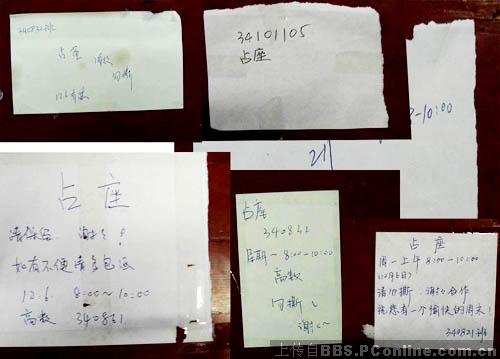 占座
勿撕
34101105
占座
8-10:00
占座
如有不便请多包涵
12.6. 8:00~10:00
高数 340831
占座
340832
星期一 8:00-10:00
高数
勿撕
谢~
占座
周一上午 8:00-10:00
请勿撕. 谢谢合作
祝您有一个愉快的周末!
340821班
上传自BBS.PConline.com.cn